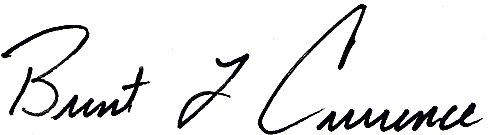 Brent L Currence